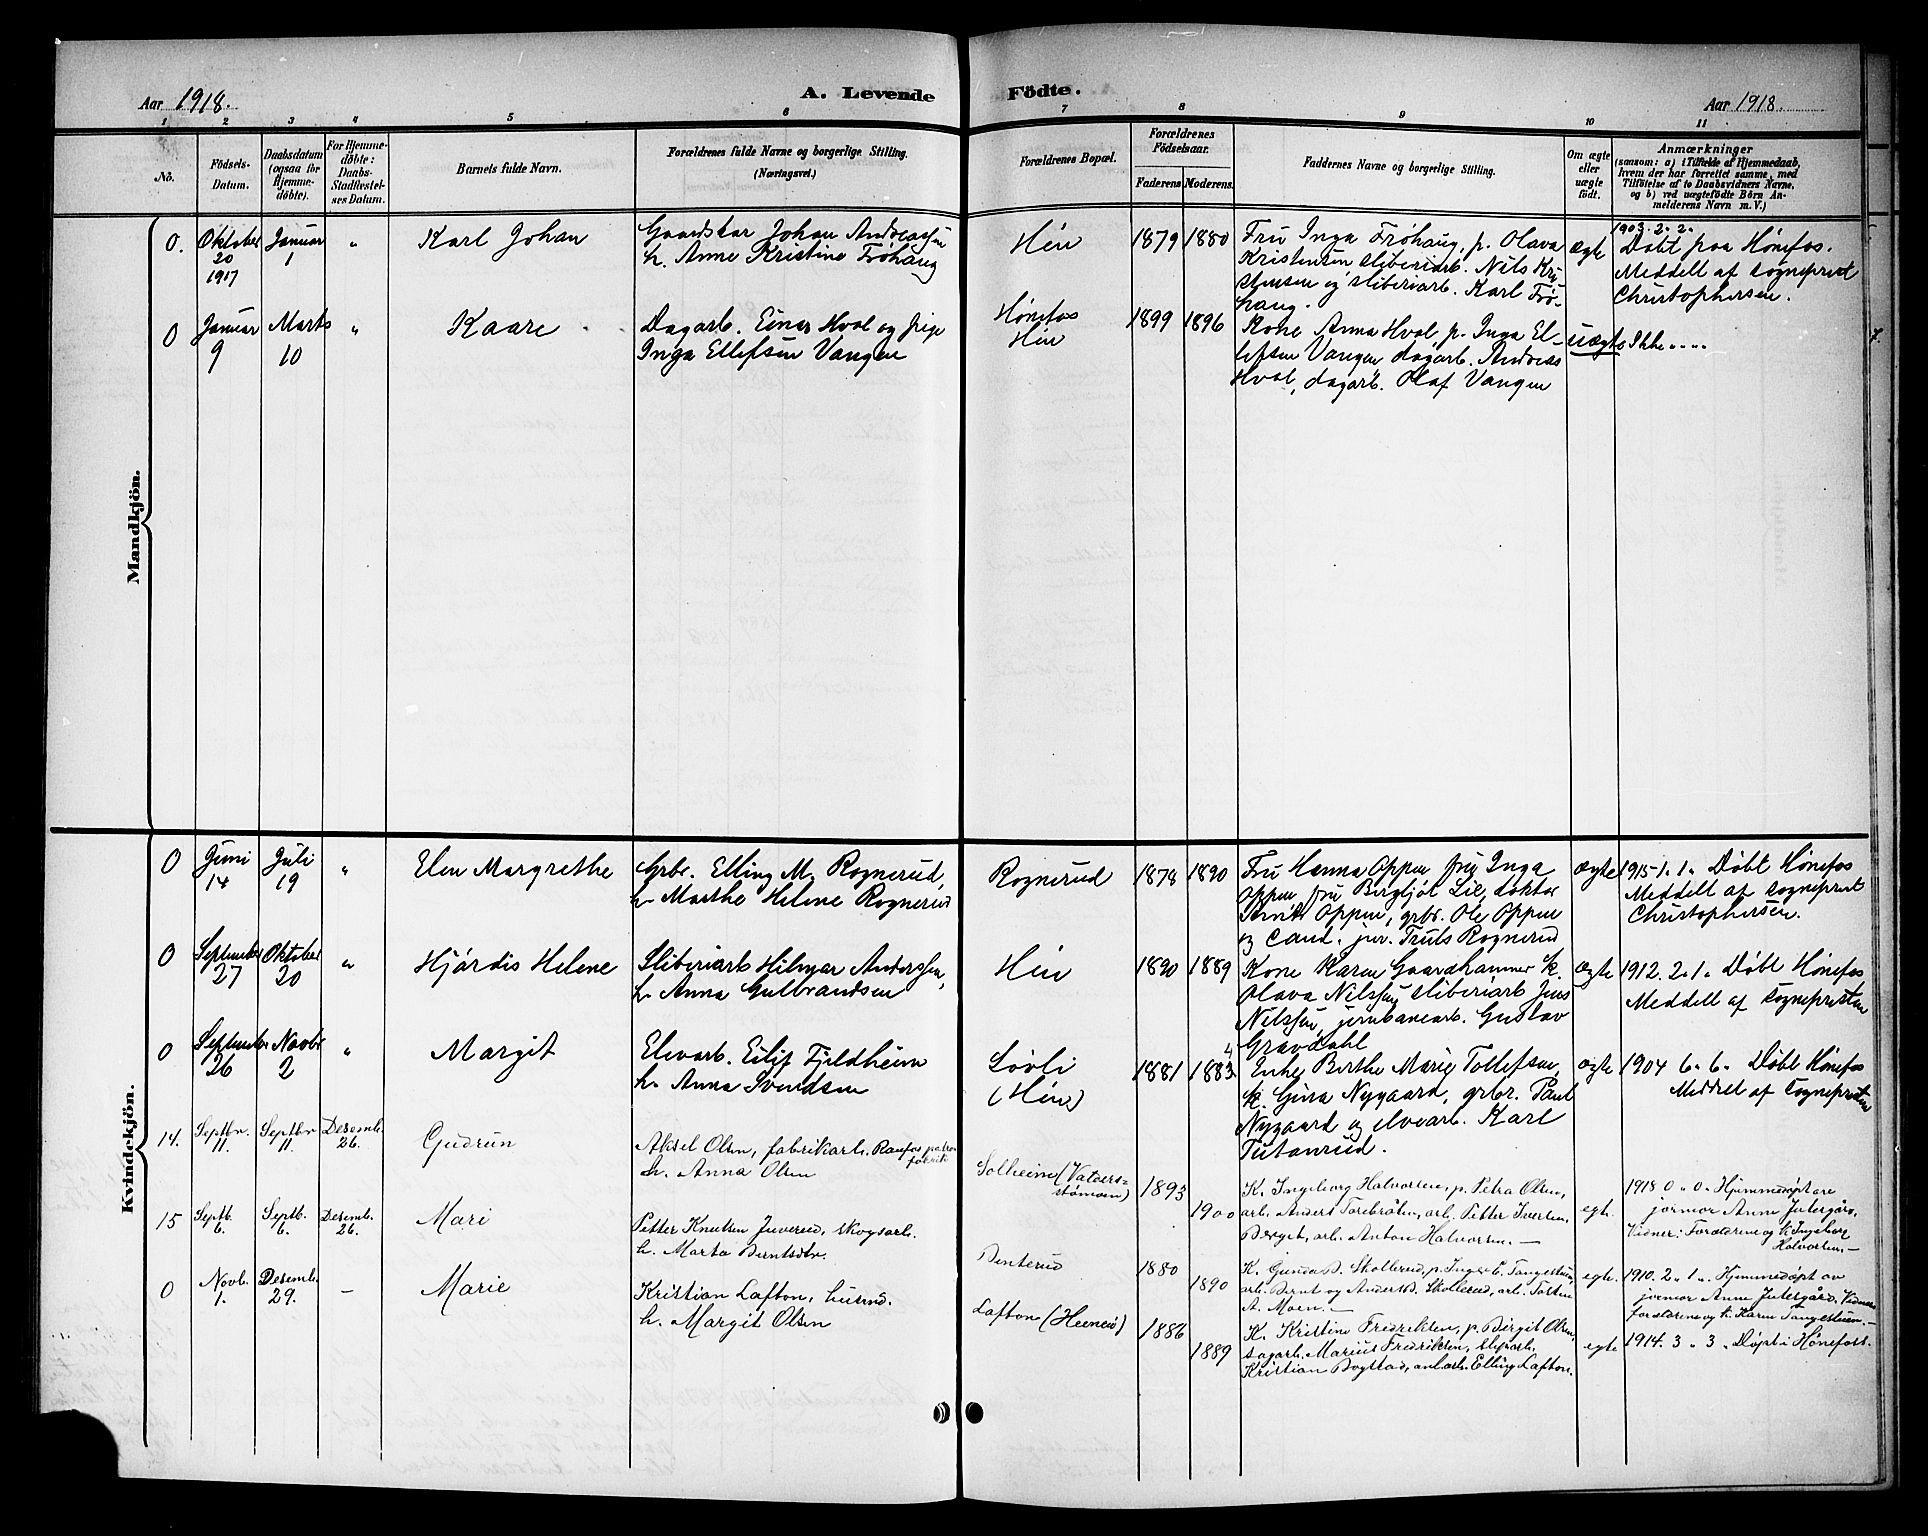 Aar 1918.
A. Levende Födte.
Aar 1918.
1 2 3 4 5 6 7 8 9 10 11
No.
Födsels-Datum.
Daabsdatum (ogsaa for Hjemme-döbte).
For Hjemme-döbte: Daabs-Stadfæstel-ses Datum.
Barnets fulde Navn.
Forældrenes fulde Navne og borgerlige Stilling. (Næringsvei.)
Forældrenes Bopæl.
Forældrenes Födselsaar.
Faderens Moderens.
Faddernes Navne og borgerlige Stilling.
Om ægte eller uægte födt.
Anmærkninger
(saasom: a) i Tilfælde af Hjemmedaab,
hvem der har forrettet samme, med
Tilföielse af to Daabsvidners Navne,
og b) ved uægtefödte Börn An-
melderens Navn m. V.)
Mandkjön.
0. Oktober 20 1917 Januar 1 " Karl Johan
Gaardskar Johan Andreassen
h. Anne Kristine Frøhaug
Hén 1879 1880
Fru Inga Frøhaug, p. Olava
Kristensen sliberiarb. Nils Kri-
stensen og sliberiarb. Karl Frø-
haug.
ægte
1903. 2. 2.
Døbt paa Hønefos.
Meddelt af sognepræst
Christophersen.
0 Januar 9 Marts 10 " Kaare
Dagarb. Einar Hval og pige
Inga Ellefsen Vangen
Hønefos
Hén
1899 1896
Kone Anna Hval, p. Inga El-
lefsen Vangen dagarb. Andreas
Hval, dagarb. Olaf Vangen
uægte Ikke " " "
Kvindekjön.
0 Juni 14 Juli 19 " Elen Margrethe
Grbr. Elling M. Rognerud,
h. Marthe Helene Rognerud
Rognerud 1878 1890
Fru Hanna Oppen fru Inga
Oppen, fru Bergljót Lie, doktor
Oppen, grbr. Ole Oppen
og Cand. jur. Truls Rognerud
ægte
1915. 1. 1. Døbt Hønefos
Meddelt af sognepræst
Christophersen.
0 September 27 Oktober 20 " Hjórdis Helene
Sliberiarb Hilmar Anderssen,
h. Anna Gulbrandsen
Hén 1890 1889
Kone Karen Gaardhammer k.
Olava Nilssen, sliberiarb Jens
Nilssen, jernbanearb. Gustav
Gravdahl
ægte
1912. 2. 1. Døbt Hønefos
Meddelt af sognepresten
0 September 26 Novbr 2 " Margit
Elvarb. Eilif Fjeldheim
h. Anna Svendsen
Lóvli
(Hén)
1881 1883
Enke Berthe Marie Tollefsen,
k. Gina Nygaard, grbr. Paul
Nygaard og elvearb. Karl
Tutanrud.
ægte
1904 6. 6. Døbt Hønefos
Meddelt af Sognepresten
14. Septbr. 11. Septbr 11. Desemb. 26. Gudrun
Aksel Olsen, fabrikarb. Raufos patron
fabrik
h. Anna Olsen
Solheim (Valders-
stømoen)
1893 1900
K. Ingeborg Halvorsen, p. Petra Olsen,
arb. Anders Torebråten, arb. Petter Iversen,
Berget, arb. Anton Halvorsen. —
egte.
1918 0 " 0 " Hjemmedøpt av
jormor Anne Jutergård,
Vidner: Forældrene og k. Ingeborg
Halvorsen. —
15 Septb. 6. Septb. 6. Desemb. 26. Mari
Petter Knutsen Juverud, skogsarb.
h. Marta Berntsdtr.
Benterud 1880 1890
K. Gunda B. Skollerud, p. Inger E. Tangestuen,
arb. Bernt og Anders B. Skollerud, arb. Torsten
A. Moen. —
egte.
1910. 2 " 1 " Hjemmedøpt av
jormor Anne Jutergård. Vidner
forældrene og k. Karen Tangestuen. —
0 Novb. 1. Desemb. 29. — Marie
Kristian Lafton, husmd.
h. Margit Olsen
Lafton (Heeneiè) 1886 1889
K. Kristine Fredriksen, p. Birgit Olsen,
sagarb. Marius Fredriksen, slip.arb.
Kristian Bogstad, anl.arb. Elling Lafton.
egte
1914. 3 " 3 " Døpt i Hønefoss.